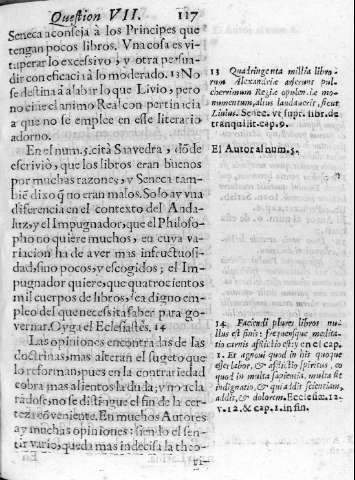 Question VII.
117
Seneca aconseja à los Principes que
tengan pocos libros. Vna cosa es vi-
tuperar lo excessivo, y otra persua-
dir con eficacia à lo moderado. 13 No
se destina à alabar lo que Livio, pero
no cine el animo Real con pertinicia
a que no se emplee en este literario
adorno.
En el num. 5. cità Saavedra, dõ de
escriviò, que los libros eran buenos
por muchas razones, y Seneca tam-
biẽ dixo q̃ no eran malos. Solo ay vna
diferencia en el contexto del Anda-
luz, y el Impugnador, que el Philoso-
pho no quiere muchos, en cuya va-
riacion ha de aver mas infructuosi-
dad, sino pocos, y escogidos; el Im-
pugnador quiere, que quatrocientos
mil cuerpos de libros, sea digno em-
pleo del que necessita saber para go-
vernar. Oyga el Eclesiastés. 14
Las opiniones encontradas de las
doctrinas, mas alteran el sugeto que
lo reforman, pues en la contrariedad
cobra mas alientos la duda; y no acla-
radose, no se distingue el fin de la cer-
teza cõveniente. En muchos Autores
ay muchas opiniones: siendo el sen-
tir vario, queda mas indecisa la theo-
13 Quadringenta millia libro-
rum Alexandriæ arserunt pul-
cherrimum Regiæ opulentiæ mo-
numentum, alius laudaverit, sicut
Livius. Senec. vt supr. libr. de
tranquilit. cap. 9.
El Autor al num. 5.
14. Faciendi plures libros nu-
llus est finis: frequensque medita-
tio carnis afflictio est: y en el cap.
1. Et agnovi quod in his quoque
esset labor, & afflictio spiritus, eo
quod in multa sapientia, multa sit
indignatio, & qui addit scientiam,
addit, & dolorem. Ecclesiæ. 12.
v. 12. & cap. 1. in fin.